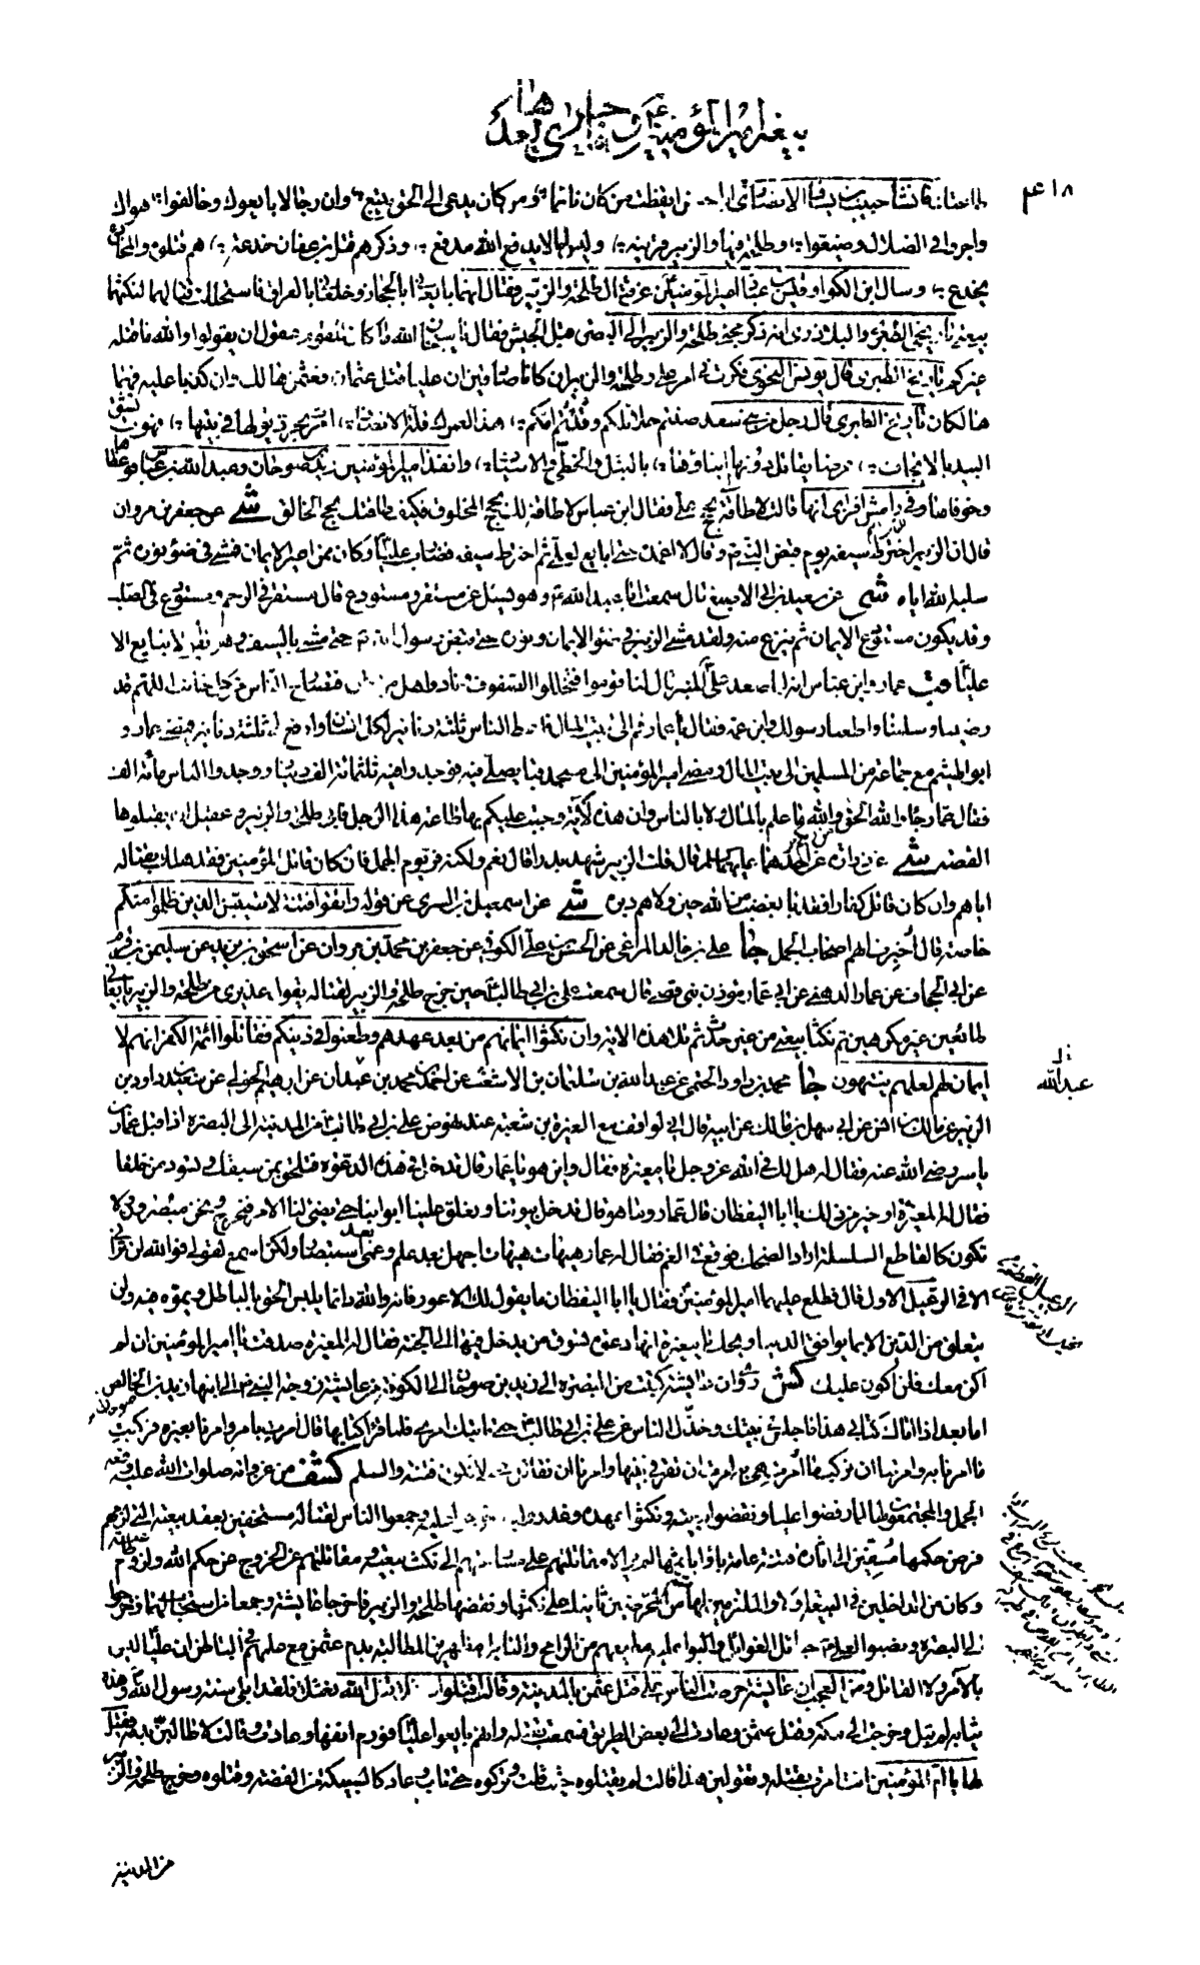 بيعة امير المؤمنين ع و ما جرى بعد
۴۱۸
فانشأ حبيب بن يساف الانصاري ابا حسن ايقظت من كان نائما و من كان يدعى الى الحق يتبع وان رجالا بايعوك وخالفوا هواك
واجروا في الضلال وضيعوا وطلحة فيها والزبير قرينه وليس لما لا يدفع الله مدفع وذكرهم قتل ابن عفان خدعة هم قتلوه والمخادع
يخدع وسأل ابن الكوا وقيس بن عباد امير المؤمنين عن قتال طلحة والزبير فقال انهما بايعاني بالحجاز وخلعاني بالعراق فاستحللت قتالهما لنكثهما
بيعتي تاريخي الطبري والبلاذري انه ذكر مجيء طلحة والزبير الى البصرة قبل الحسن فقال يا سبحان الله ما كان للقوم عقول ان يقولوا والله ما قتله
غيركم تاريخ الطبري قال يونس النحوي فكرت في امر علي وطلحة والزبير ان كانا صادقين ان عليا قتل عثمان فعثمان هالك وان كذبا عليه فهما
هالكان تاريخ الطبري قال رجل من بني سعد صنتم حلائلكم وقدتم امكم هذا لعمرك قلة الانصاف امرت بجر ذيولها في بيتها فهوت تشق
البيد بالايجاف غرضا يقاتل دونها ابناؤها بالنبل والخطي والاسياف وانفذ امير المؤمنين زيد بن صوحان وعبد الله بن عباس فوعظاها
وخوفاها وفي رامش افزاي انها قالت لا طاقة لي بحجج علي فقال ابن عباس لا طاقة لك بحجج المخلوق فكيف طاقتك بحجج الخالق شي عن جعفر بن مروان
قال ان الزبير اخترط سيفه يوم قبض النبي ص وقال لا اغمده حتى ابايع لعلي ثم اخترط سيفه فضارب عليا وكان ممن اعير الايمان فمشى في ضوء نوره ثم
سلبه الله اياه شي عن سعيد بن ابي الاصبغ قال سمعت ابا عبد الله ع وهو يسئل عن مستقر ومستودع قال مستقر في الرحم ومستودع في الصلب
وقد يكون مستودع الايمان ثم ينزع منه ولقد مشى الزبير في ضوء الايمان ونوره حتى قبض رسول الله ص حتى مشى بالسيف وهو يقول لا نبايع الا
عليا عمار وابن عباس انه لما صعد علي المنبر قال لنا قوموا فتخللوا الصفوف ونادوا هل من كاره فتصارخ الناس من كل جانب اللهم قد
رضينا وسلمنا واطعنا رسولك وابن عمه فقال يا عمار قم الى بيت المال فاعط الناس ثلثة دنانير لكل انسان وارفع لي ثلثة دنانير فمضى عمار و
ابو الهيثم مع جماعة من المسلمين الى بيت المال ومضى امير المؤمنين الى مسجد قبا يصلي فيه فوجدوا فيه ثلثمائة الف دينار ووجدوا الناس مائة الف
فقال عمار جاء والله الحق والله ما علم بالمال ولا بالناس وان هذه لآية وجبت عليكم بها طاعة هذا الرجل فابى طلحة والزبير وعقيل ان يقبلوها
القصة شي عن زرارة عن احدهما عليهما السلم قال قلت الزبير شهد بدرا قال نعم ولكنه فر يوم الجمل فان كان قاتل المؤمنين فقد هلك بقتاله
اياهم وان كان قاتل كفارا فقد باء بغضب من الله حين ولاهم دبره شي عن اسمعيل بن السري عن قوله واتقوا فتنة لا تصيبن الذين ظلموا منكم
خاصة قال اخبرت انهم اصحاب الجمل جا علي بن خالد المراغي عن الحسن بن علي الكوفي عن جعفر بن محمد بن مروان عن اسحق بن يزيد عن سليمن بن قرم
عن ابي الجحاف عن عمار الدهني عن ابي عثمان مؤذن بني افصى قال سمعت علي بن ابي طالب ع حين خرج طلحة والزبير لقتاله يقول عذيري من طلحة والزبير بايعاني
طائعين غير مكرهين ثم نكثا بيعتي من غير حدث ثم تلا هذه الاية وان نكثوا ايمانهم من بعد عهدهم وطعنوا في دينكم فقاتلوا ائمة الكفر انهم لا
ايمان لهم لعلهم ينتهون جا محمد بن داود الحتمي عن عبد الله بن سليمان بن الاشعث عن احمد بن محمد بن عبدان عن ابرهيم الحربي عن سعيد بن داود بن
الزبير عن مالك بن انس عن ابي سهيل بن مالك عن ابيه قال اني لواقف مع المغيرة بن شعبة عند نهوض علي بن ابي طالب ع من المدينة الى البصرة اذ اقبل عمار بن
ياسر رضي الله عنه فقال له هل لك في الله عز وجل يا مغيرة فقال واين هو يا عمار قال تدخل في هذه الدعوة فتلحق بمن سبقك وتسود من خلفك
فقال له المغيرة او خير من ذلك يا ابا اليقظان قال عمار وما هو قال ندخل بيوتنا ونغلق علينا ابوابنا حتى يضيء لنا الامر فنخرج ونحن مبصرون ولا
نكون كقاطع السلسلة اراد الضحك فوقع في الغم فقال له عمار هيهات هيهات اجهل بعد علم وعمى بعد استبصار ولكن اسمع لقولي فوالله لن تراني
الا في الرعيل الاول قال فطلع عليهما امير المؤمنين ع فقال يا ابا اليقظان ما يقول لك الاعور فانه والله دائما يلبس الحق بالباطل ويموه فيه ولن
يتعلق من الدين الا بما يوافق الدنيا ويحك يا مغيرة انها دعوة تسوق من يدخل فيها الى الجنة فقال له المغيرة صدقت يا امير المؤمنين ان لم
اكن معك فلن اكون عليك كش روي ان عايشة كتبت من البصرة الى زيد بن صوحان الى الكوفة من عايشة زوجة النبي ص الى ابنها زيد بن صوحان الخالص
اما بعد اذا اتاك كتابي هذا فاجلس في بيتك وخذل الناس عن علي بن ابي طالب ع حتى ياتيك امري فلما قرأ كتابها قال امرت بامر وامرنا بغيره فركبت
ما امرنا به وامرتنا ان نركب ما امرت هي به امرت ان تقر في بيتها وامرنا ان نقاتل حتى لا تكون فتنة والسلم كشف من غزواته صلوات الله عليه وقعة
الجمل والمجتمعون لها لما رفضوا عليا ونقضوا بيعته ونكثوا عهده وغدروا به وخرجوا عليه وجمعوا الناس لقتاله مستخفين بعقد بيعته التي لزمهم
فرض حكمها مسفين الى اثارة فتنة عامة باؤا باثمها لم ير الا مقاتلتهم على مسارعتهم الى نكث بيعته ومقابلتهم عن الخروج عن حكم الله ولزوم طاعته
وكان من الداخلين في البيعة اولا والملتزمين لها ثم من المحرضين ثانيا على نكثها ونقضها طلحة والزبير فاخرجا عايشة وجمعا من استجاب لهما وخرجوا
الى البصرة ونصبوا لعلي ع حبائل الغوائل والبوا عليه مطيعهم من الرامح والنابل مظهرين المطالبة بدم عثمن مع علمهم في الباطن ان عليا ليس
بالآمر ولا القاتل ومن العجب ان عايشة حرضت الناس على قتل عثمن بالمدينة وقالت اقتلوا نعثلا قتل الله نعثلا فلقد ابلى سنة رسول الله ص وهذه
ثيابه لم تبل وخرجت الى مكة وقتل عثمن وعادت الى بعض الطريق فسمعت بقتله وانهم بايعوا عليا فورم انفها وعادت وقالت لاطالبن بدمه فقيل
لها يا ام المؤمنين انت امرت بقتله وتقولين هذا قالت لم يقتلوه حيث قلت وتركوه حتى تاب وعاد كالسبيكة من الفضة وقتلوه وخرج طلحة والزبير
من المدينة
عبد الله